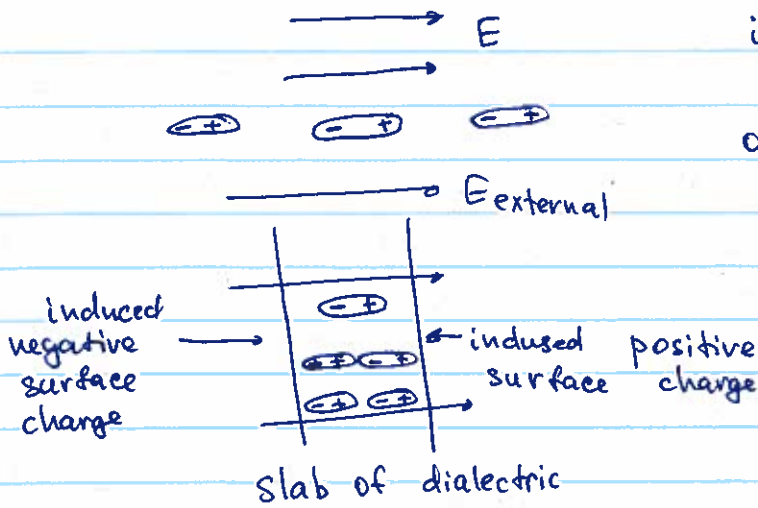 E
i
- +
- +
- +
o
E external
- +
induced
negative
surface
charge
indused positive
surface charge
- + - +
- + - +
Slab of dialectric